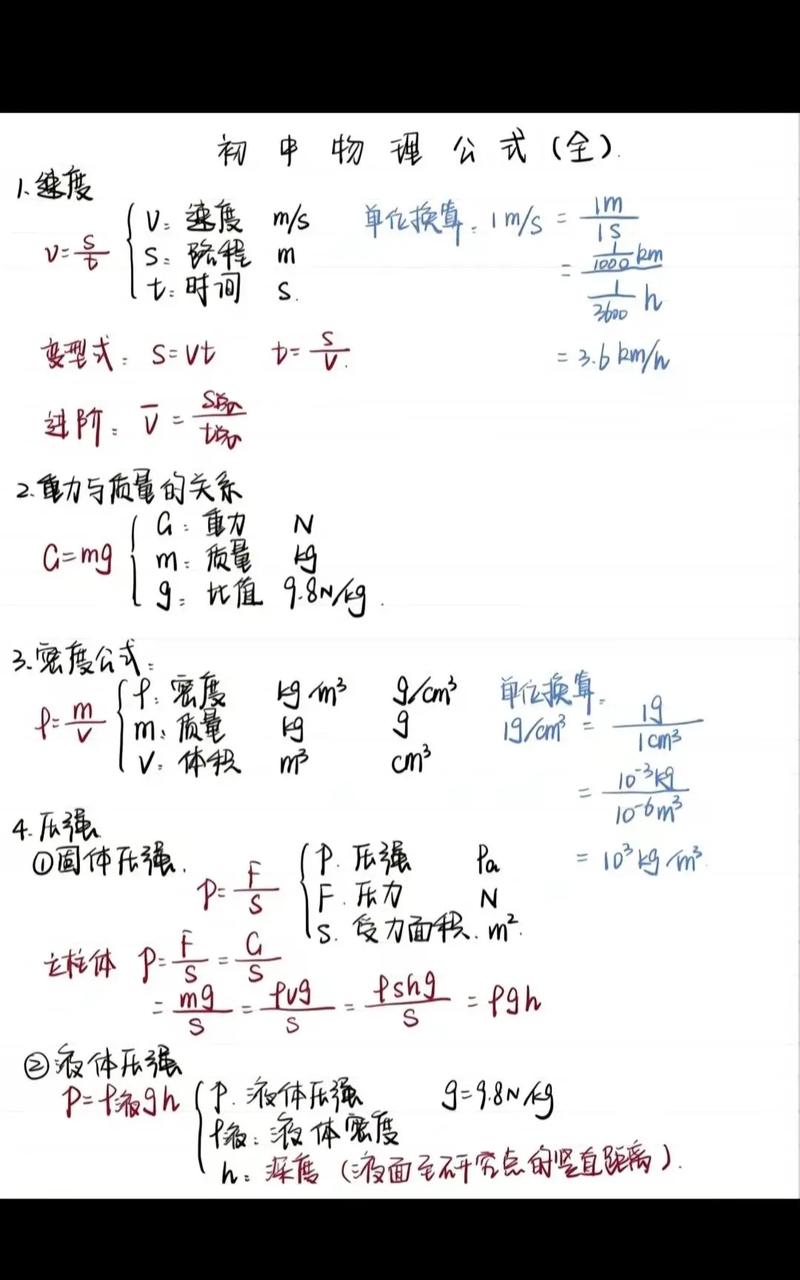 初中物理公式(全).
1.速度
v=s/t { v: 速度 m/s 单位换算: 1m/s = 1m/1s
s: 路程 m = (1/1000 km)/(1/3600 h)
t: 时间 s. = 3.6km/h
变型式: s=vt t=s/v.
进阶: v̄ = s总/t总
2.重力与质量的关系
G=mg { G: 重力 N
m: 质量 kg
g: 比值 9.8N/kg.
3.密度公式:
ρ=m/v { ρ: 密度 kg/m³ g/cm³ 单位换算:
m: 质量 kg g 1g/cm³ = 1g/1cm³
V: 体积 m³ cm³ = 10⁻³kg/10⁻⁶m³
= 10³kg/m³
4.压强
①固体压强.
P=F/S { P. 压强 Pa
F. 压力 N
S. 受力面积. m².
立柱体 P=F/S=G/S
=mg/S=ρvg/S=ρshg/S=ρgh
②液体压强
P=ρ液gh { P. 液体压强 g=9.8N/kg
ρ液: 液体密度
h: 深度 (液面至研究点的竖直距离).